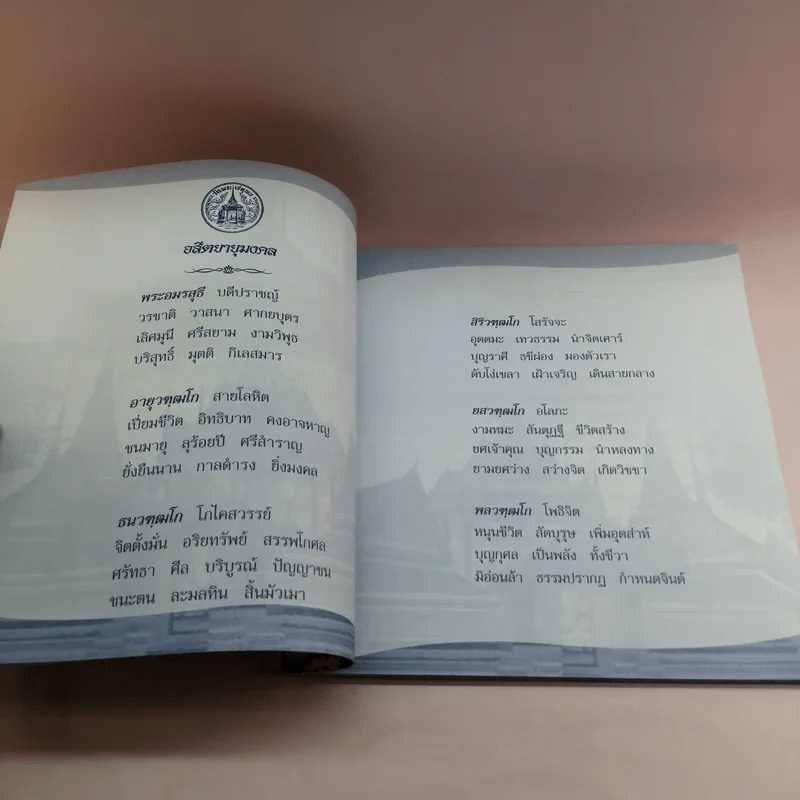 วัดพระเชตุพน
อสีตยายุมงคล
พระอมรสุธี บดีปราชญ์
วรชาติ วาสนา ศากยบุตร
เลิศมุนี ศรีสยาม งามวิพุธ
บริสุทธิ์ มุตติ กิเลสมาร
อายุวฑฺฒโก สายโลหิต
เปี่ยมชีวิต อิทธิบาท คงอาจหาญ
ชนมายุ ลุร้อยปี ศรีสำราญ
ยั่งยืนนาน กาลดำรง ยิ่งมงคล
ธนวฑฺฒโก โภไคสวรรย์
จิตตั้งมั่น อริยทรัพย์ สรรพโกศล
ศรัทธา ศีล บริบูรณ์ ปัญญาชน
ชนะตน ละมลทิน สิ้นมัวเมา
สิริวฑฺฒโก โสรัจจะ
อุตตมะ เทวธรรม นำจิตเศาร์
บุญราศี ธขีผ่อง มองตัวเรา
ดับโง่เขลา เฝ้าเจริญ เดินสายกลาง
ยสวฑฺฒโก อโลภะ
งามทมะ สันตุฏฐี ชีวิตสร้าง
ยศเจ้าคุณ บุญกรรม นำหลงทาง
ยามยศว่าง สว่างจิต เกิดวิชชา
พลวฑฺฒโก โพธิจิต
หนุนชีวิต สัตบุรุษ เพิ่มอุตส่าห์
บุญกุศล เป็นพลัง ทั้งชีวา
มิอ่อนล้า ธรรมปรากฏ กำหนดจินต์